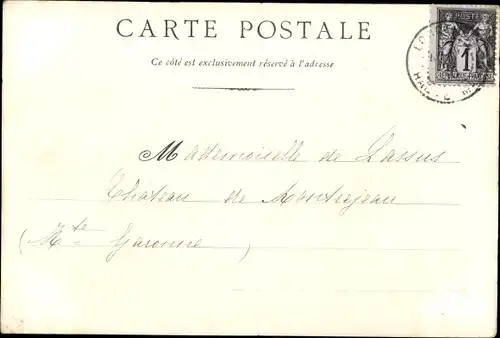 CARTE POSTALE
Ce côté est exclusivement réservé à l'adresse
POSTE
1
Mademoiselle de Lassus
Château de Montrejeau
(Hte Garonne)